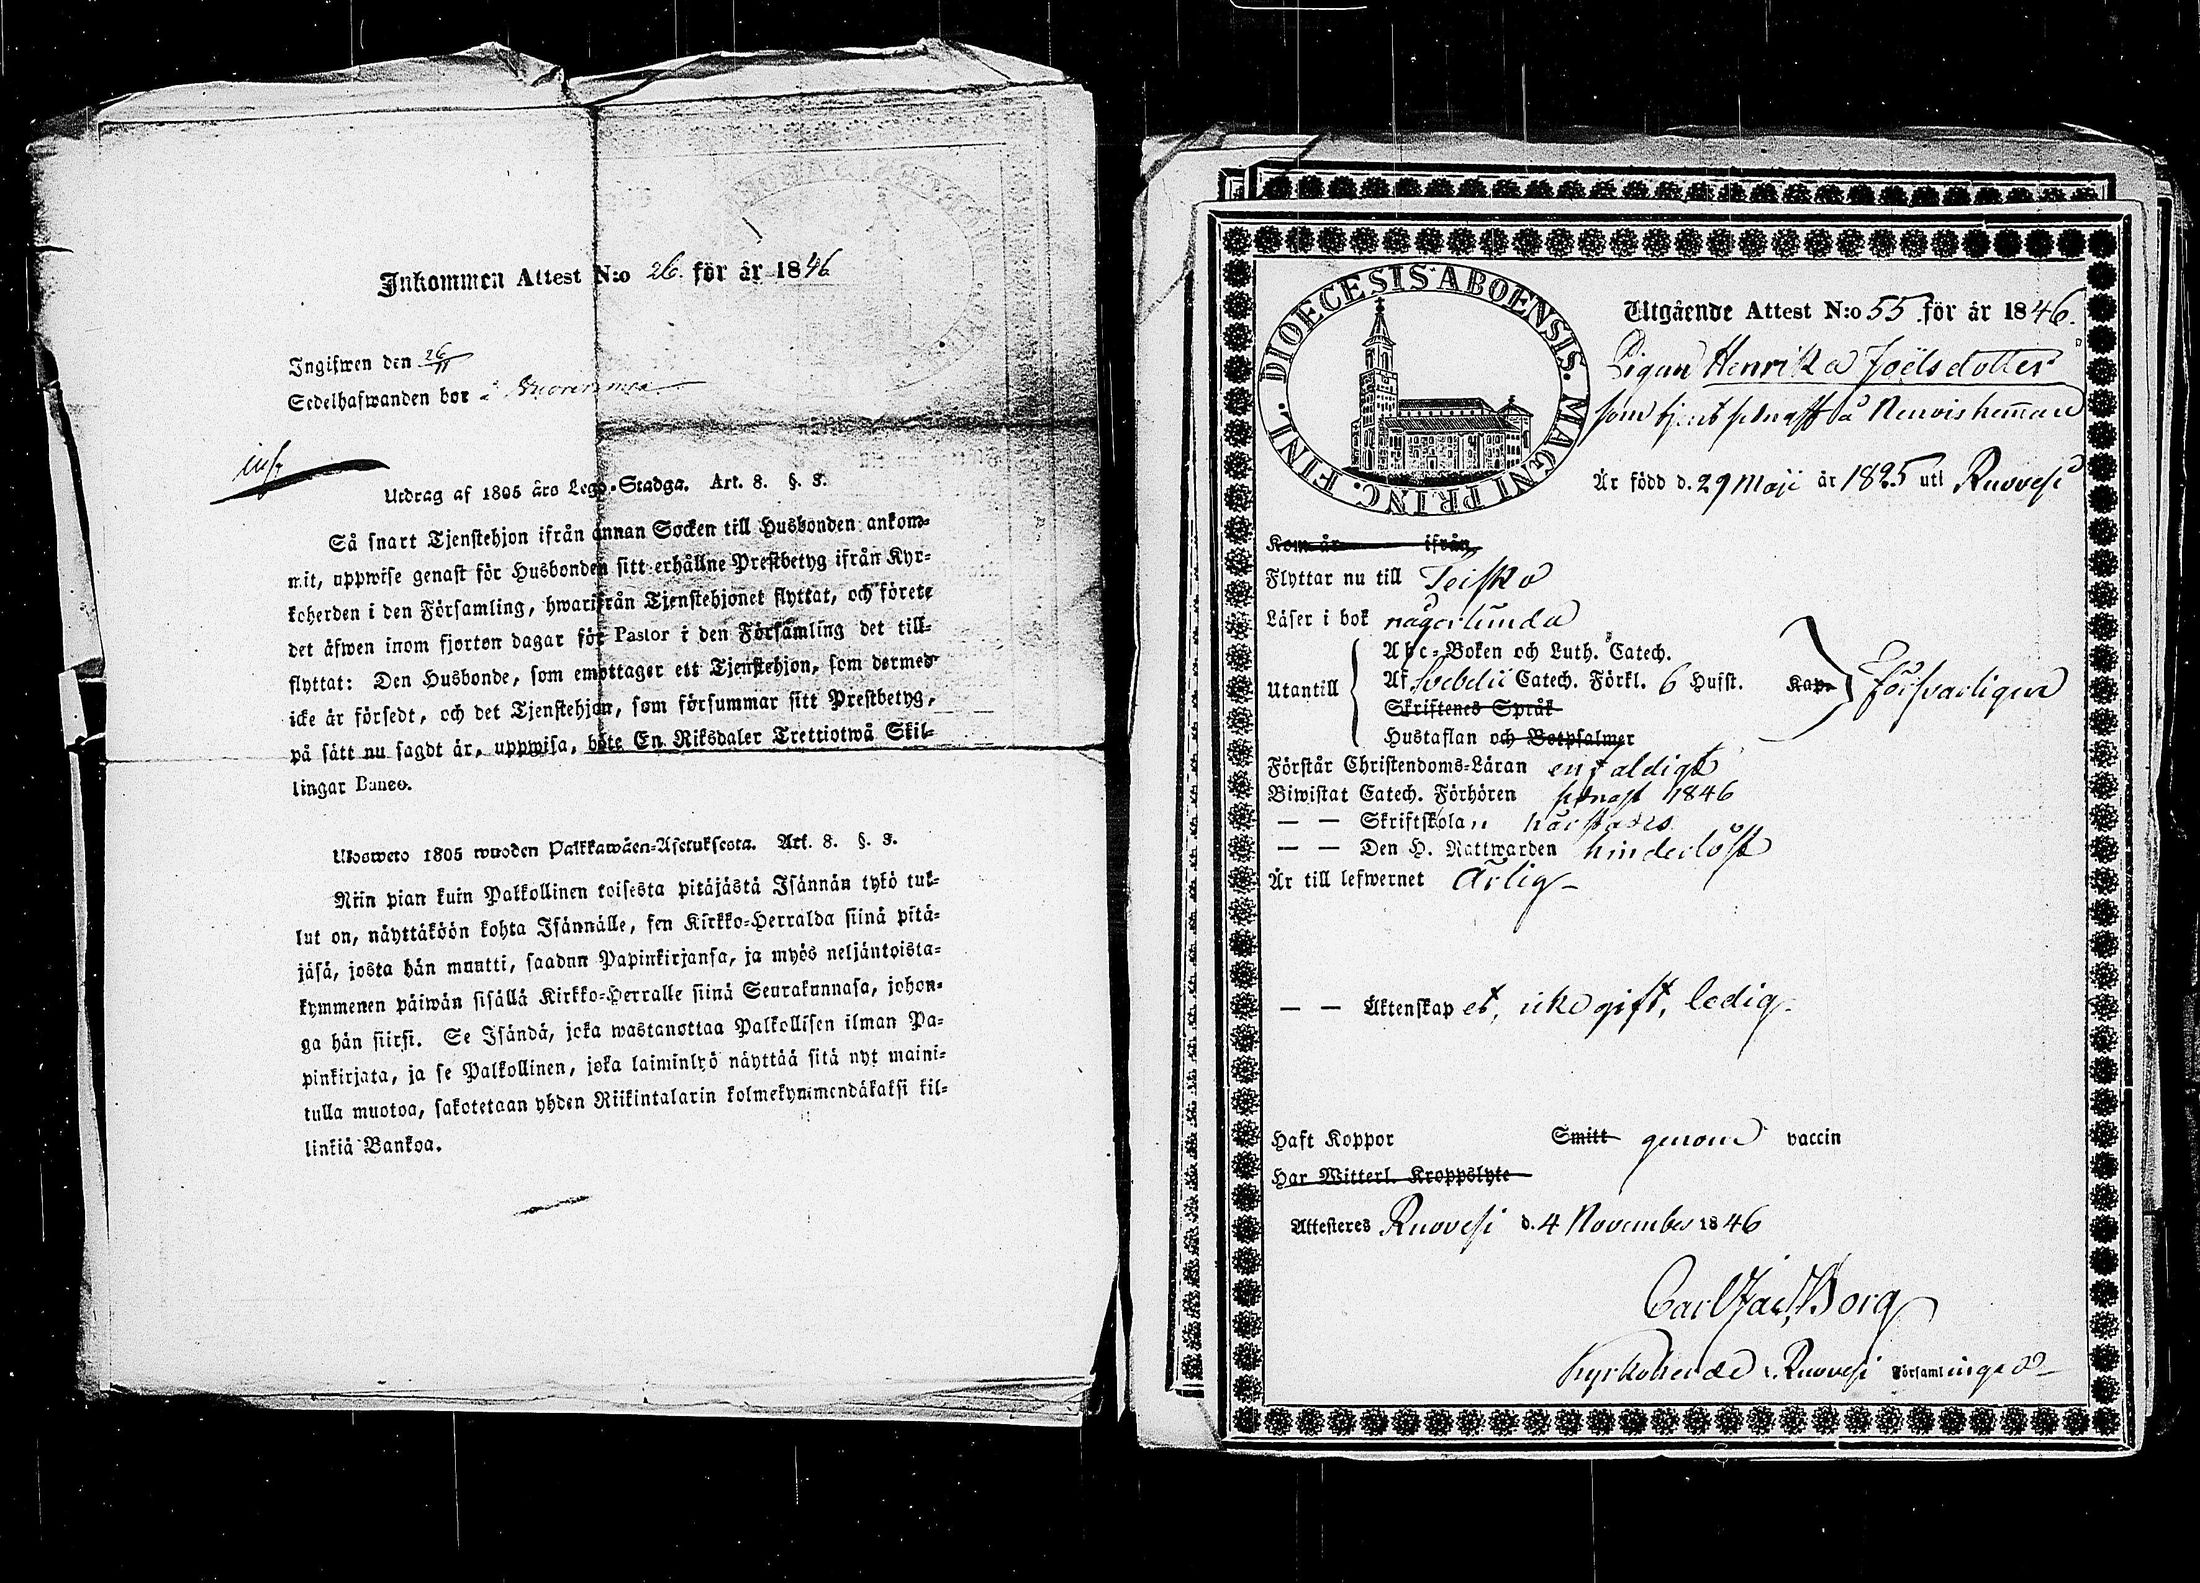 Inkommen Attest N:o 26. för år 1846
Ingifwen den 26/11
Sedelhafwanden bor i
Utdrag af 1805 års Lego-Stadga. Art. 8. §. 3.
Så snart Tjenstehjon ifrån annan Socken till Husbonden ankom-
mit, uppwise genast för Husbonden sitt erhållne Prestbetyg ifrån Kyr-
koherden i den Församling, hwarifrån Tjenstehjonet flyttat, och förete
det äfwen inom fjorton dagar för Pastor i den Församling det till-
flyttat: Den Husbonde, som emottager ett Tjenstehjon, som dermed
icke är försedt, och det Tjenstehjon, som försummar sitt Prestbetyg,
på sätt nu sagdt är, uppwisa, böte En Riksdaler Trettiotwå Skil-
lingar Banco.
Ulosweto 1805 wuoden Palkkawäen-Asetuksesta. Art. 8. §. 3.
Niin pian kuin Palkollinen toisesta pitäjästä Isännän tykö tul-
lut on, näyttäköön kohta Isännälle, sen Kirkko-Herralda siinä pitä-
jäsä, josta hän muutti, saadun Papinkirjansa, ja myös neljäntoista-
kymmenen päiwän sisällä Kirkko-Herralle siinä Seurakunnasa, johon-
ga hän siirsi. Se Isändä, joka wastanottaa Palkollisen ilman Pa-
pinkirjata, ja se Palkollinen, joka laiminlyö näyttää sitä nyt maini-
tulla muotoa, sakotetaan yhden Riikintalarin kolmekymmendäkaksi kil-
linkiä Bankoa.
DIOECESIS ABOENSIS. MAGNI PRINC. FINL.
Utgående Attest N:o 55 för år 1846.
Pigan Henrika Joëlsdotter
som tjent senast på hemman
Är född d. 29 Maji år 1825 uti Ruovesi
Kom år ifrån
Flyttar nu till Teisko
Läser i bok någorlunda
Utantill
Abc-Boken och Luth. Catech.
Af Svebelii Catech. Förkl. 6 Hufst.
Skriftenes Språk
Hustaflan och Botpsalmer
Kap. Försvarligen
Förstår Christendoms-Läran enfaldigt
Biwistat Catech. Förhören senast 1846
— — Skriftskolan härstädes
— — Den H. Nattwarden hinderlöst
Är till lefwernet Ärlig
— — Äktenskap et, icke gift, ledig.
Haft Koppor Smitt genom vaccin
Har Witterl. Kroppslyte
Attesteres Ruovesi d. 4 November 1846
Carl Borg
Kyrkoherde i Ruovesi Församlingar